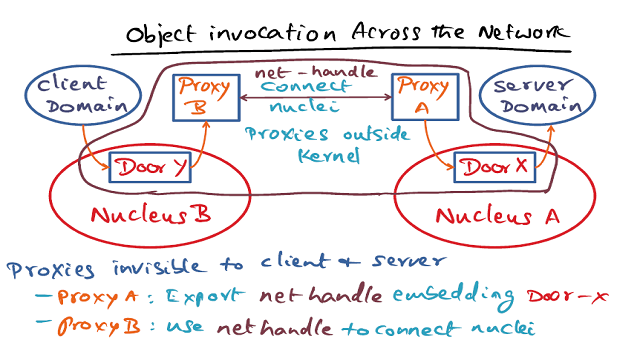 Object invocation Across the Network
Client Domain
Proxy B
net-handle
connect nuclei
Proxies outside Kernel
Proxy A
Server Domain
Door Y
Door X
Nucleus B
Nucleus A
Proxies invisible to client & server
- Proxy A : Export net handle embedding Door-x
- Proxy B : use net handle to connect nuclei